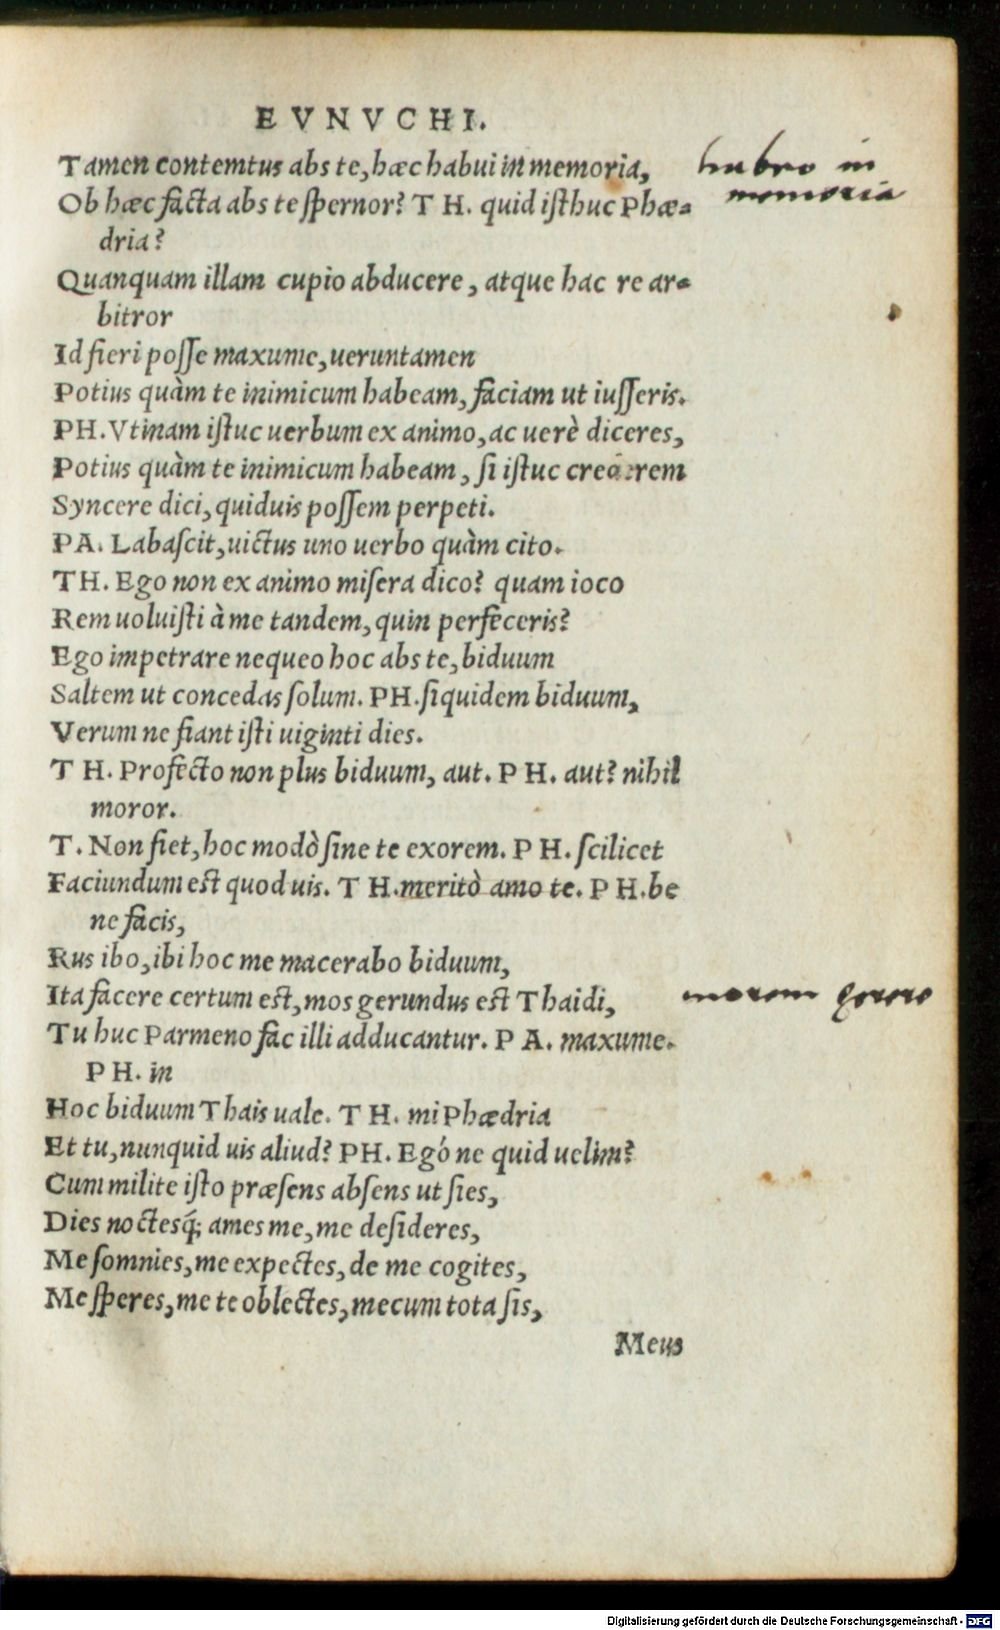 EVNVCHI.
Tamen contemtus abs te, hæc habui in memoria,
habere in
memoria
Ob hæc facta abs te spernor? TH. quid isthuc Phæ-
dria?
Quanquam illam cupio abducere, atque hac re ar-
bitror
Id fieri posse maxume, ueruntamen
Potius quàm te inimicum habeam, faciam ut iusseris.
PH. Vtinam istuc uerbum ex animo, ac uerè diceres,
Potius quàm te inimicum habeam, si istuc crederem
Syncere dici, quiduis possem perpeti.
PA. Labascit, uictus uno uerbo quàm cito.
TH. Ego non ex animo misera dico? quam ioco
Rem uoluisti à me tandem, quin perfeceris?
Ego impetrare nequeo hoc abs te, biduum
Saltem ut concedas solum. PH. siquidem biduum,
Verum ne fiant isti uiginti dies.
TH. Profecto non plus biduum, aut. PH. aut? nihil
moror.
T. Non fiet, hoc modò sine te exorem. PH. scilicet
Faciundum est quod uis. TH. meritò amo te. PH. be
ne facis,
Rus ibo, ibi hoc me macerabo biduum,
Ita facere certum est, mos gerundus est Thaidi,
morem gerere
Tu huc Parmeno fac illi adducantur. PA. maxume.
PH. in
Hoc biduum Thais uale. TH. mi Phædria
Et tu, nunquid uis aliud? PH. Egó ne quid uelim?
Cum milite isto præsens absens ut sies,
Dies noctesq́; ames me, me desideres,
Me somnies, me expectes, de me cogites,
Me speres, me te oblectes, mecum tota sis,
Meus
Digitalisierung gefördert durch die Deutsche Forschungsgemeinschaft - DFG